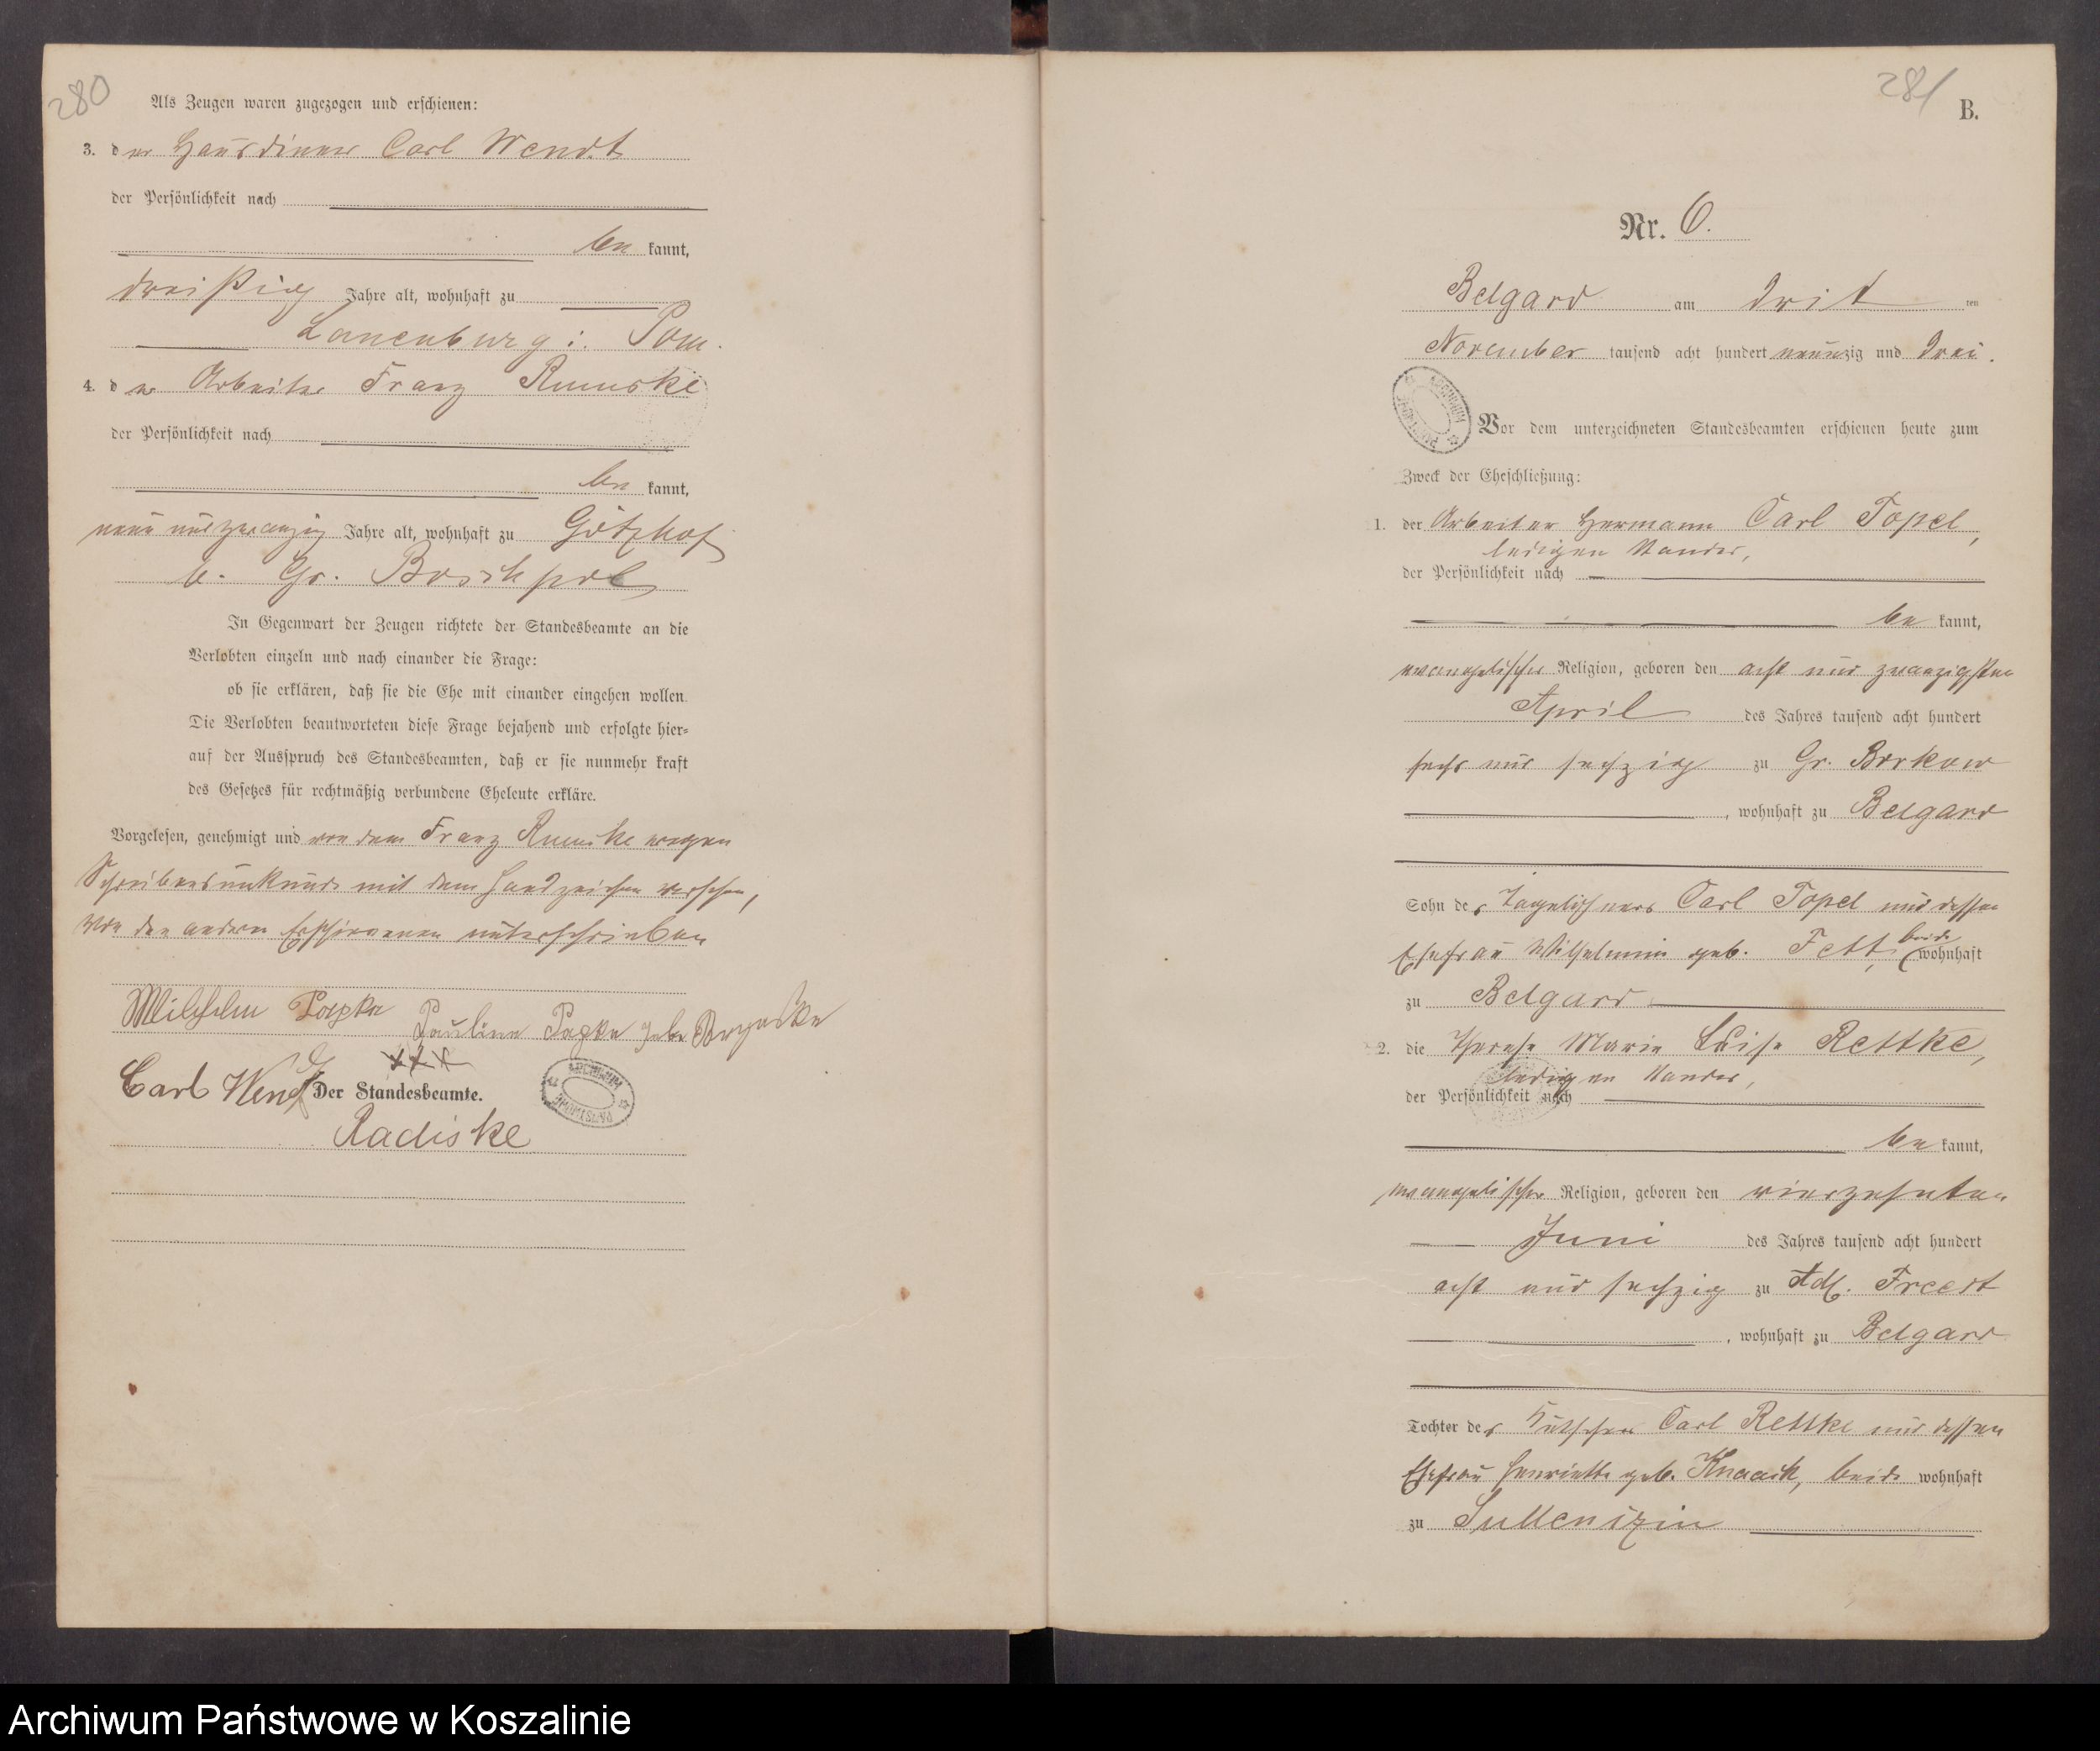 280
Als Zeugen waren zugezogen und erschienen:
3. der Hausdiener Carl Wendt
der Persönlichkeit nach
be kannt,
dreißig Jahre alt, wohnhaft zu
Lauenburg i. Pom.
4. der Arbeiter Franz
der Persönlichkeit nach
be kannt,
neun und zwanzig Jahre alt, wohnhaft zu Götzhof
b. Gr. Boschpol
In Gegenwart der Zeugen richtete der Standesbeamte an die
Verlobten einzeln und nach einander die Frage:
ob sie erklären, daß sie die Ehe mit einander eingehen wollen.
Die Verlobten beantworteten diese Frage bejahend und erfolgte hier-
auf der Ausspruch des Standesbeamten, daß er sie nunmehr kraft
des Gesetzes für rechtmäßig verbundene Eheleute erkläre.
Vorgelesen, genehmigt und von dem Franz wegen
Schreibensunkunde mit dem Handzeichen versehen,
von den andern Erschienenen unterschrieben
Wilhelm Papke Pauline Papke geb.
Carl Wendt xxx
Der Standesbeamte.
Radiske
ARCHIWUM PAŃSTWOWE
281
B.
Nr. 6.
Belgard am drit ten
November tausend acht hundert neunzig und drei.
ARCHIWUM PAŃSTWOWE
Vor dem unterzeichneten Standesbeamten erschienen heute zum
Zweck der Eheschließung:
1. der Arbeiter Hermann Carl Topel,
ledigen Standes,
der Persönlichkeit nach
be kannt,
evangelischer Religion, geboren den acht und zwanzigsten
April des Jahres tausend acht hundert
sechs und sechzig zu Gr. Borkow
, wohnhaft zu Belgard
Sohn des Tagelöhners Carl Topel und dessen
Ehefrau Wilhelmine geb. Fett, beide wohnhaft
zu Belgard
2. die Therese Marie Luise Rettke,
ledigen Standes,
der Persönlichkeit nach
be kannt,
evangelischer Religion, geboren den vierzehnten
Juni des Jahres tausend acht hundert
acht und sechzig zu Adl. Freest
, wohnhaft zu Belgard
Tochter des Kutschers Carl Rettke und dessen
Ehefrau Henriette geb. Knaack, beide wohnhaft
zu Sullenczin
Archiwum Państwowe w Koszalinie